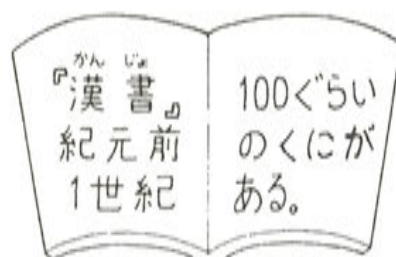 かんじょ
『漢書』
紀元前
1世紀
100ぐらい
のくにが
ある。